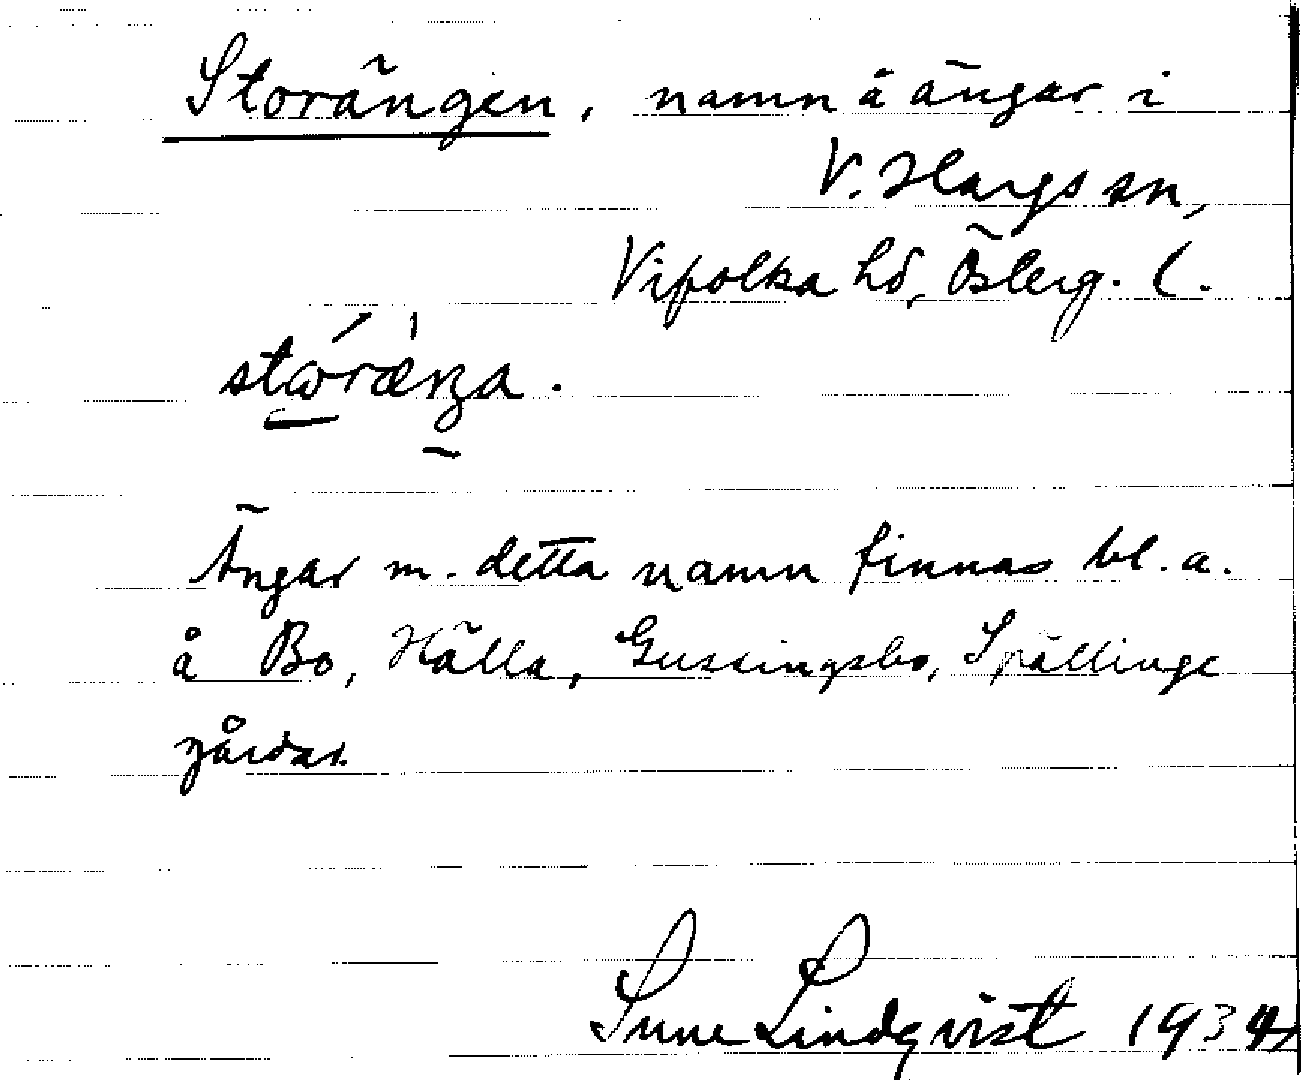 Storängen, namn å ängar i
V. Hargs sn,
Vifolka hd, Österg. l.
Ängar m. detta namn finnas bl. a.
å Bo, Hälla, Gussingsbo, Spällinge
gårdar.
Sune Lindqvist 1934